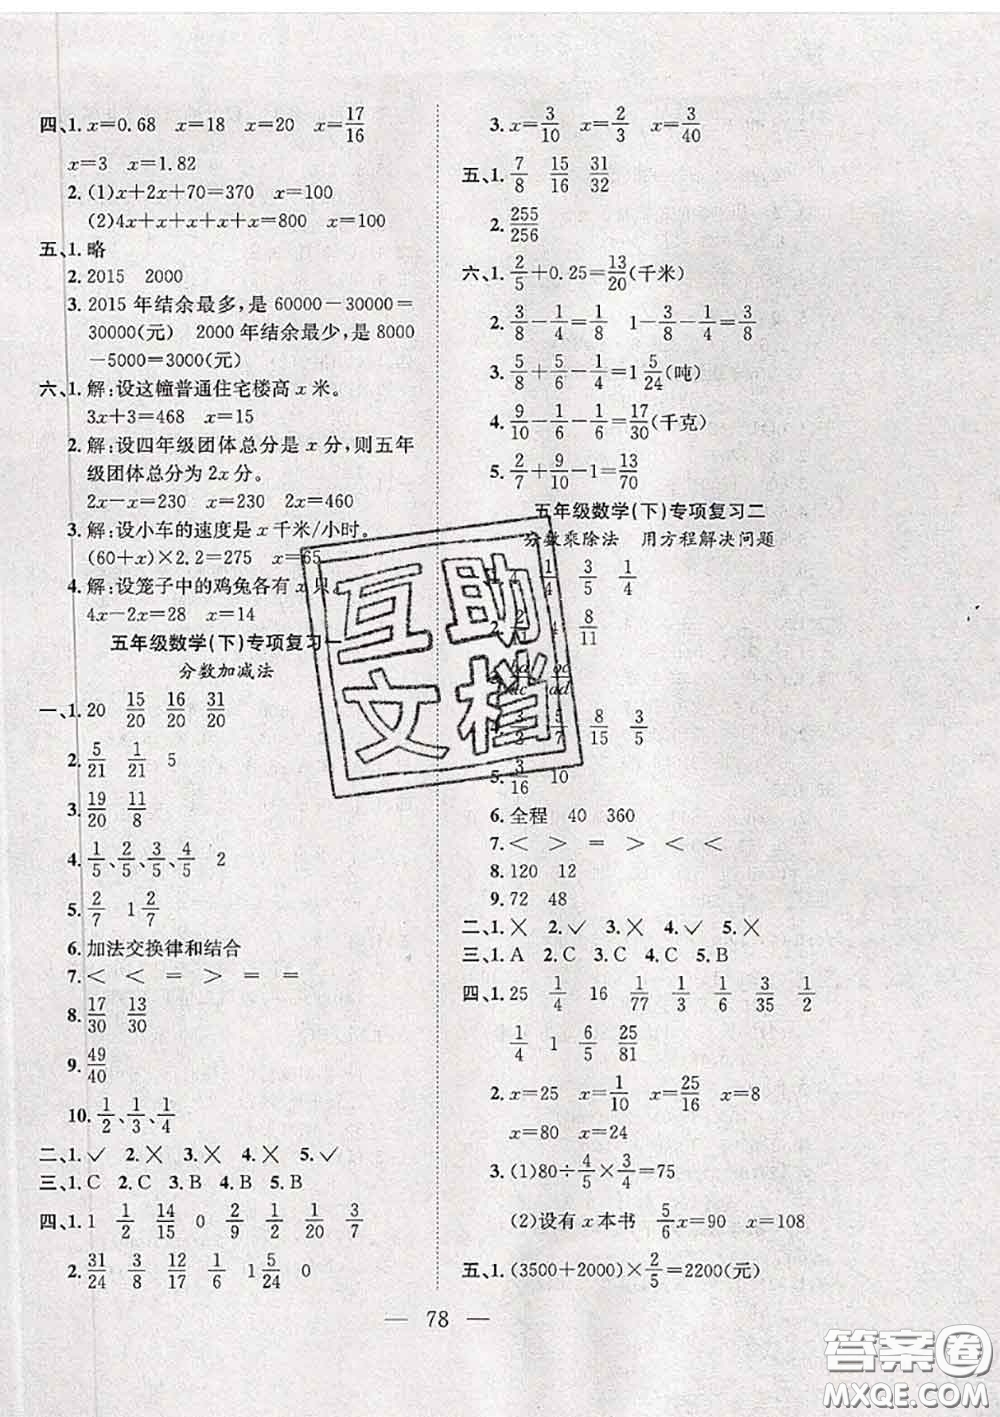 四、1. x=0.68 x=18 x=20 x=17/16
x=3 x=1.82
2. (1)x+2x+70=370 x=100
(2)4x+x+x+x+x=800 x=100
五、1. 略
2. 2015 2000
3. 2015 年结余最多,是 60000-30000=
30000(元) 2000 年结余最少,是 8000
-5000=3000(元)
六、1. 解:设这幢普通住宅楼高 x 米。
3x+3=468 x=15
2. 解:设四年级团体总分是 x 分,则五年
级团体总分为 2x 分。
2x-x=230 x=230 2x=460
3. 解:设小车的速度是 x 千米/小时。
(60+x)×2.2=275 x=65
4. 解:设笼子中的鸡兔各有 x 只。
4x-2x=28 x=14
五年级数学(下)专项复习一
分数加减法
一、1. 20 15/20 16/20 31/20
2. 5/21 1/21 5
3. 19/20 11/8
4. 1/5、2/5、3/5、4/5 2
5. 2/7 1 2/7
6. 加法交换律和结合
7. < < = > = =
8. 17/30 13/30
9. 49/40
10. 1/2、1/3、1/4
二、1. ✓ 2. ✕ 3. ✕ 4. ✕ 5. ✓
三、1. C 2. C 3. B 4. B 5. B
四、1. 1 1/2 14/15 0 2/9 1/2 1/20 3/7
2. 31/24 3/8 12/17 1/6 1 5/24 0
3. x=3/10 x=2/3 x=3/40
五、1. 7/8 15/16 31/32
2. 255/256
六、1. 2/5+0.25=13/20(千米)
2. 3/8-1/4=1/8 1-3/8-1/4=3/8
3. 5/8+5/8-1/24=1 5/24(吨)
4. 9/10-1/6-1/6=17/30(千克)
5. 2/7+9/10-1=13/70
五年级数学(下)专项复习二
分数乘除法 用方程解决问题
1/4 3/5 1/4
8/11
oc/ad
5/7 8/15 3/5
5. 3/16 10
6. 全程 40 360
7. < > = > < <
8. 120 12
9. 72 48
二、1. ✕ 2. ✓ 3. ✕ 4. ✓ 5. ✕
三、1. A 2. C 3. C 4. C 5. B
四、1. 25 1/4 16 1/77 1/3 1/6 3/35 1/2
1/4 1 6/5 25/81
2. x=25 x=1/10 x=25/16 x=8
x=80 x=24
3. (1)80÷4/5×3/4=75
(2)设有 x 本书 5/6x=90 x=108
五、1. (3500+2000)×2/5=2200(元)
— 78 —
互助
文档
答案圈
MXQE.COM